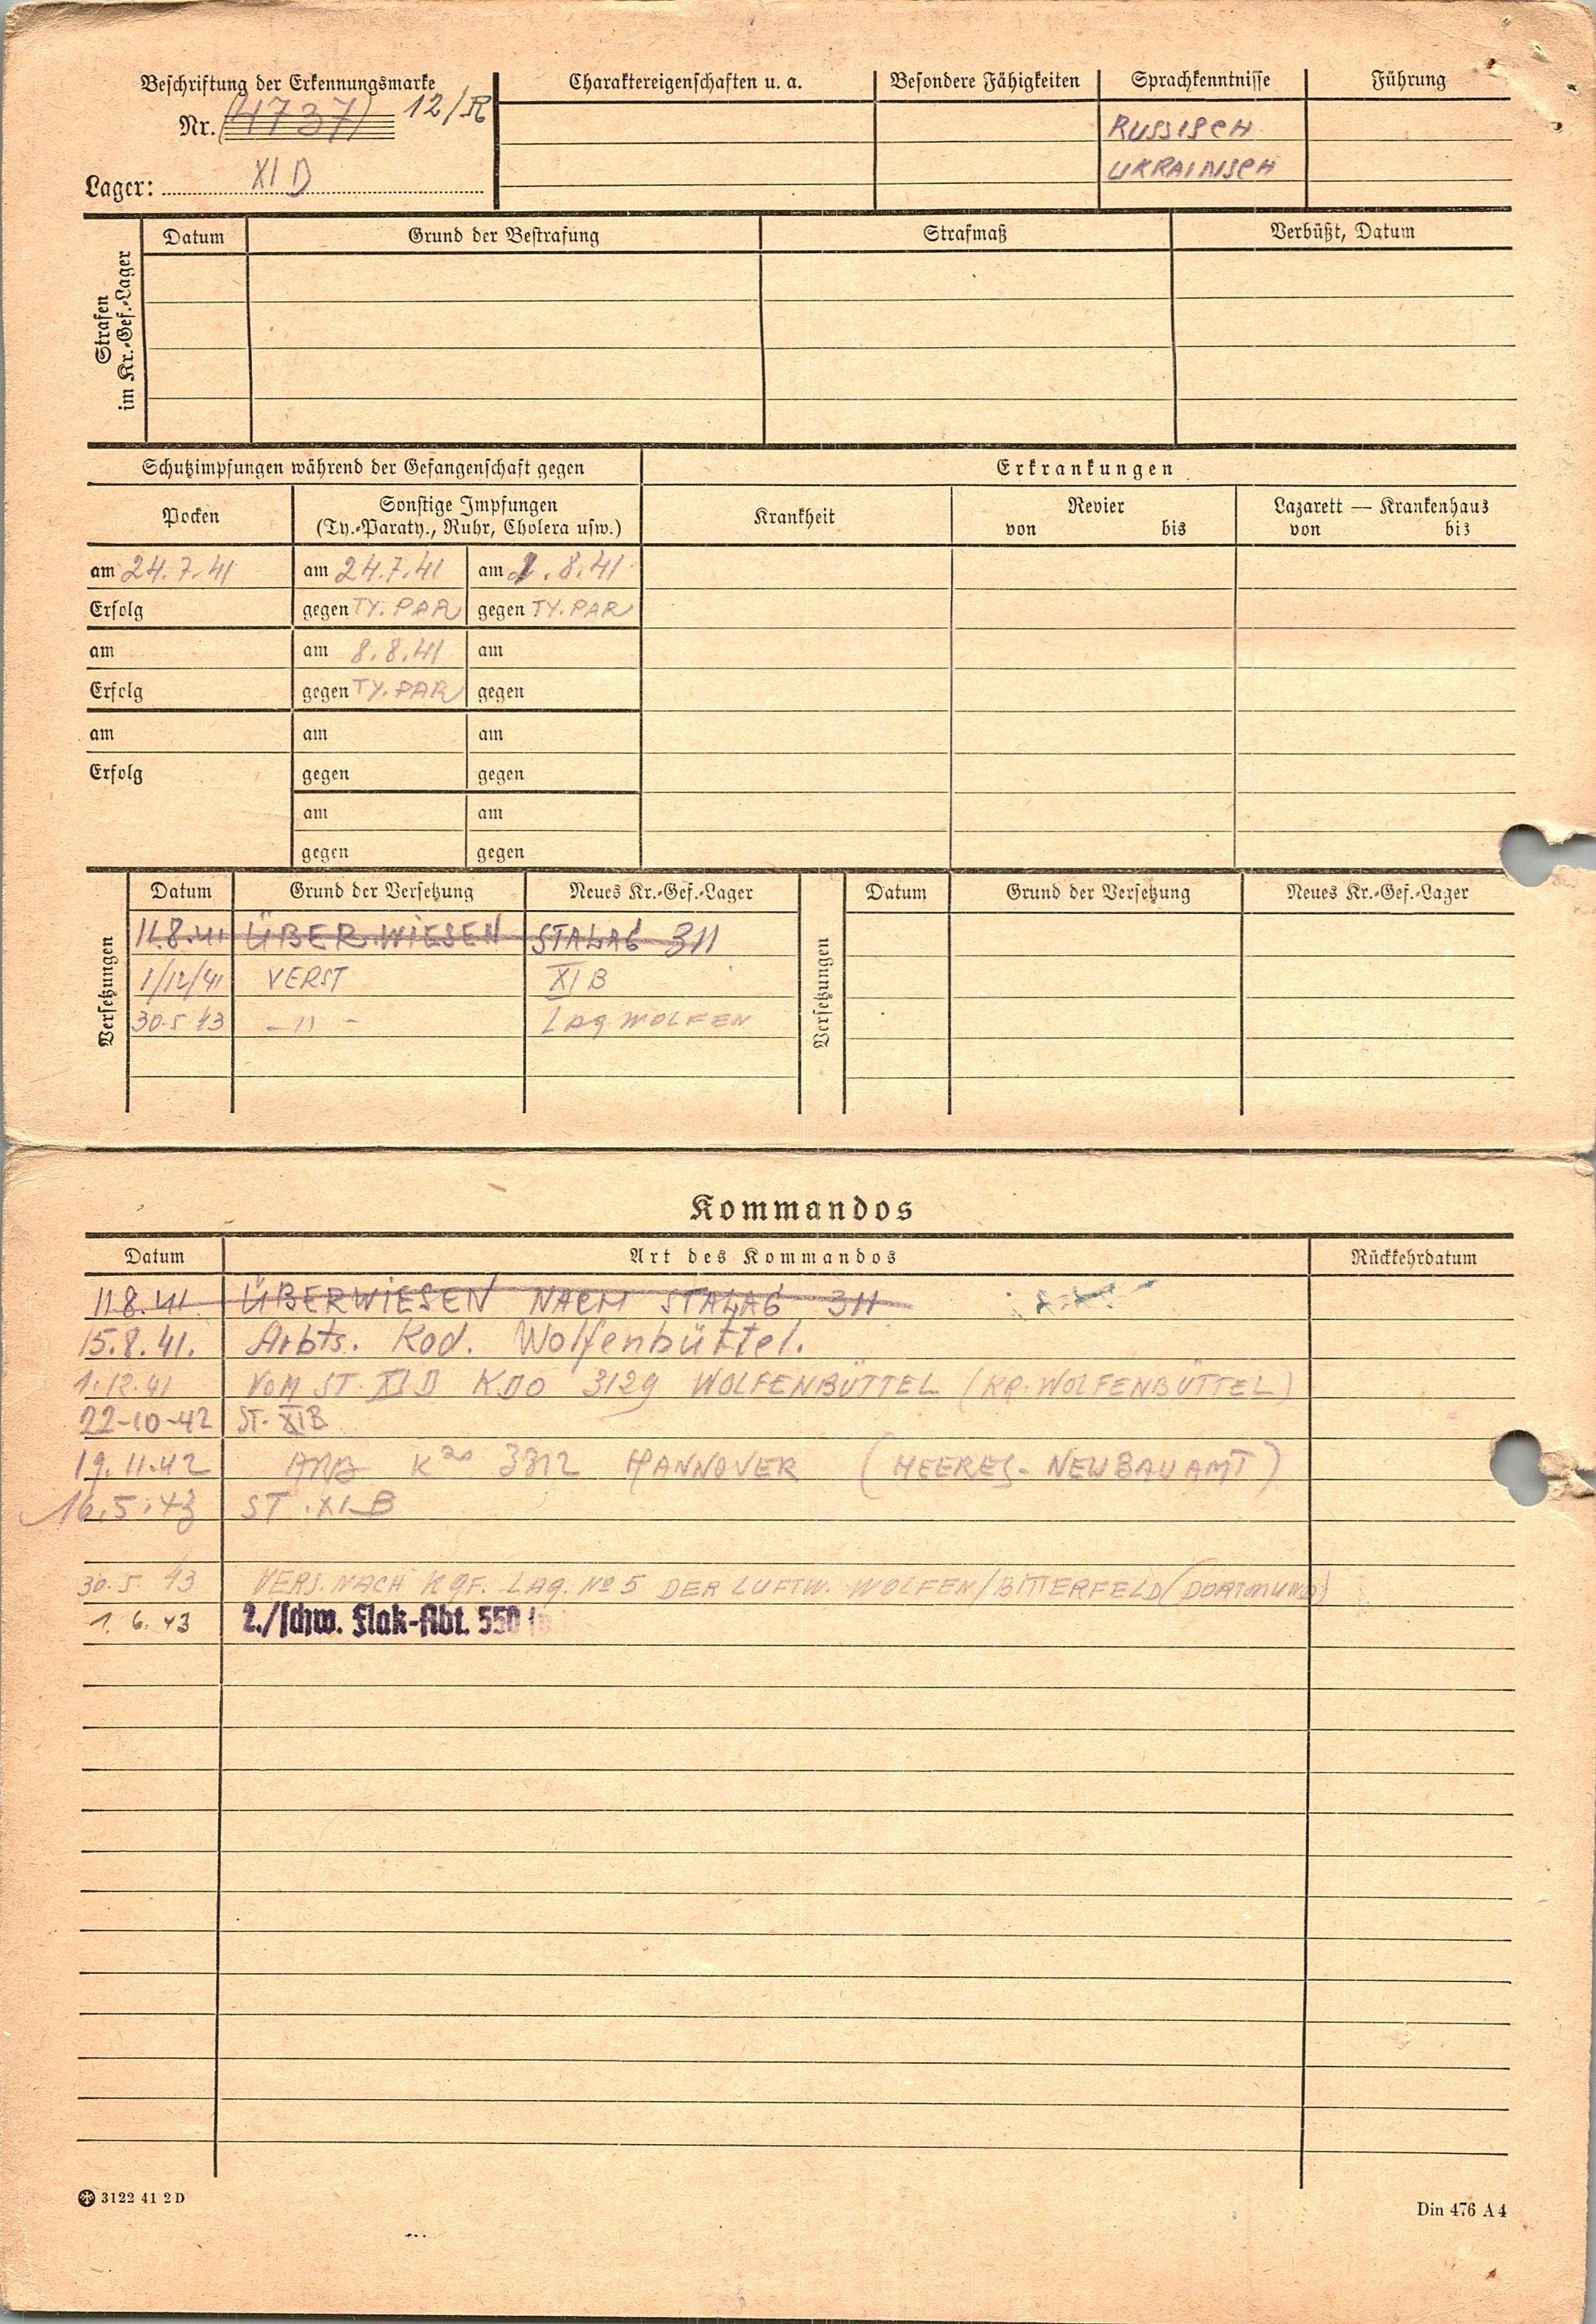 Beschriftung der Erkennungsmarke
Nr. 4737 12/R
Lager: XI D
Charaktereigenschaften u. a. Besondere Fähigkeiten Sprachkenntnisse Führung
RUSSISCH
UKRAINISCH
Strafen im Kr.-Gef.-Lager
Datum Grund der Bestrafung Strafmaß Verbüßt, Datum
Schutzimpfungen während der Gefangenschaft gegen Erkrankungen
Pocken Sonstige Impfungen (Ty.-Paraty., Ruhr, Cholera usw.) Krankheit Revier von bis Lazarett — Krankenhaus von bis
am 24.7.41 am 24.7.41 am 1.8.41
Erfolg gegen TY. PAR gegen TY. PAR
am am 8.8.41 am
Erfolg gegen TY. PAR gegen
am am am
Erfolg gegen gegen
am am
gegen gegen
Versetzungen
Datum Grund der Versetzung Neues Kr.-Gef.-Lager
11.8.41 ÜBERWIESEN STALAG 311
1/12/41 VERST XI B
30.5 43 – 〃 – LAG WOLFEN
Versetzungen
Datum Grund der Versetzung Neues Kr.-Gef.-Lager
Kommandos
Datum Art des Kommandos Rückkehrdatum
11.8.41 ÜBERWIESEN NACH STALAG 311
15.8.41. Arbts. Kod. Wolfenbüttel.
1.12.41 VOM ST. XI D KDO 3129 WOLFENBÜTTEL (KR. WOLFENBÜTTEL)
22-10-42 ST. XI B
19.11.42 ARB K do 3312 HANNOVER (HEERES-NEUBAUAMT)
16.5.43 ST. XI B
30.5. 43 VERS. NACH KGF. LAG. No 5 DER LUFTW. WOLFEN/BITTERFELD (DORTMUND)
1. 6. 43 2./schw. Flak-Abt. 550
3122 41 2 D
Din 476 A 4